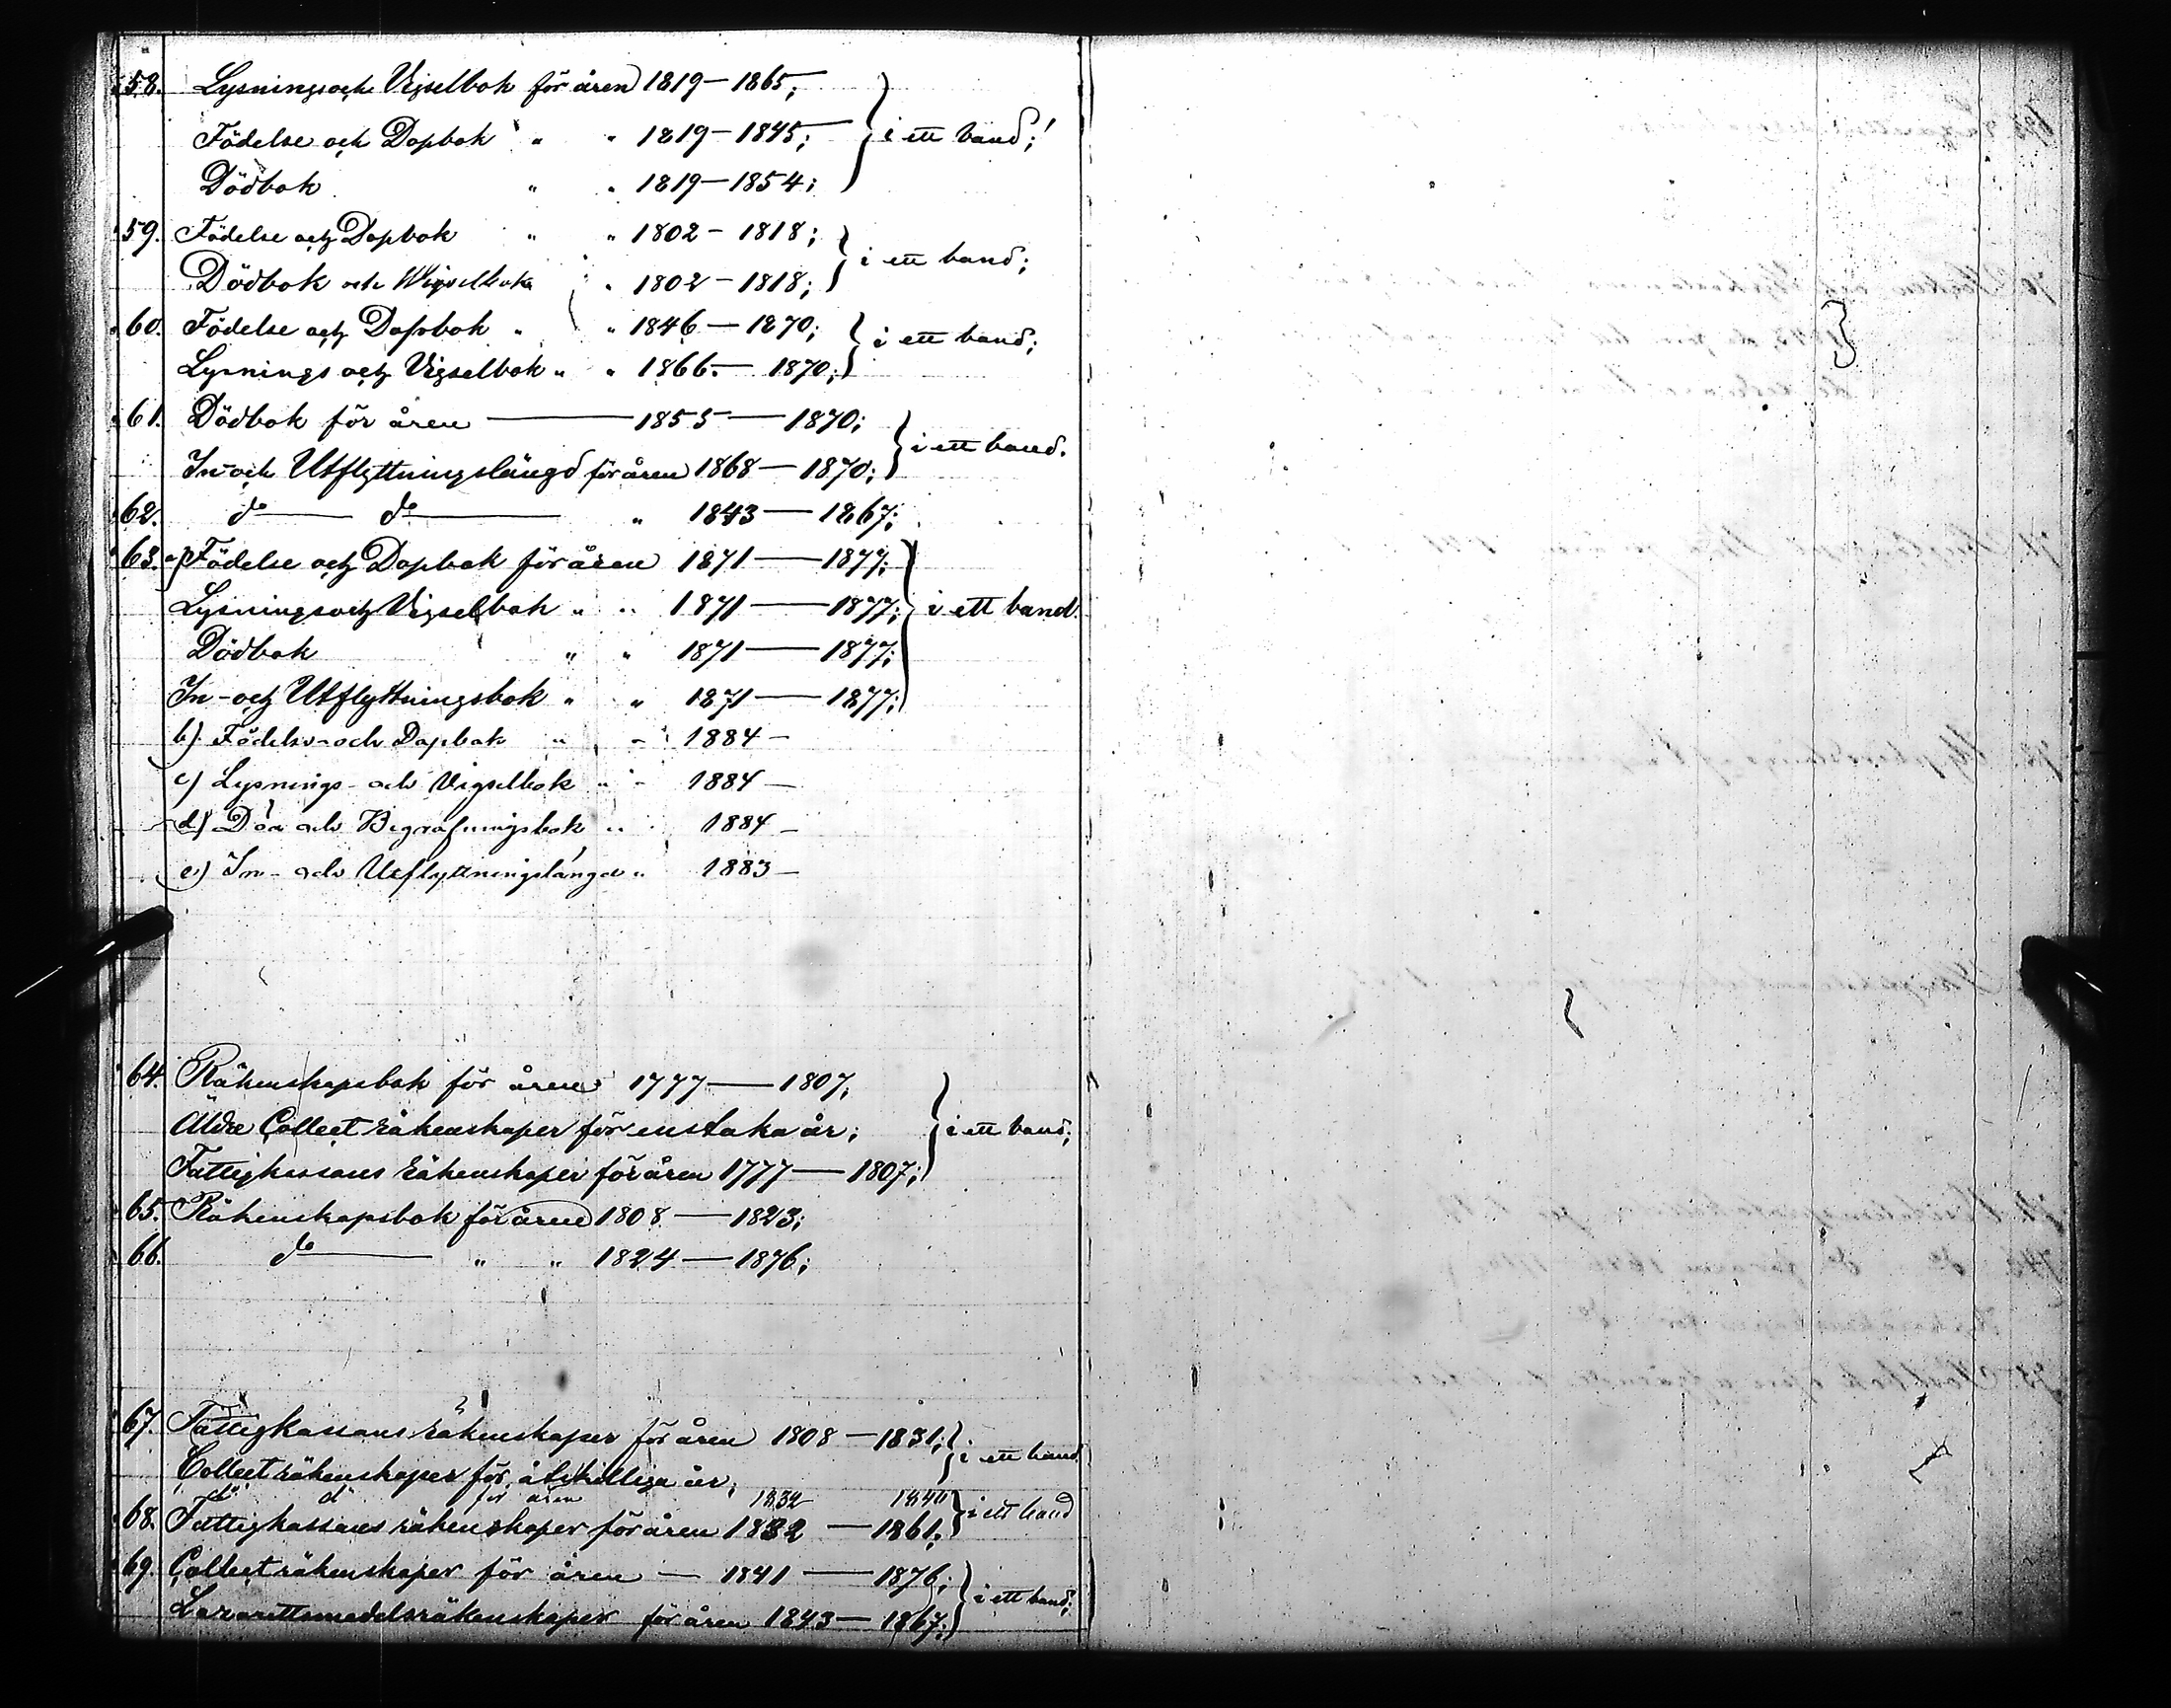 58. Lysnings och Vigselbok för åren 1819–1865; } i ett band;
Födelse och Dopbok " " 1819–1845;
Dödbok " " 1819–1854;
59. Födelse och Dopbok " " 1802 – 1818; } i ett band;
Dödbok och Wigselbok " 1802 – 1818;
60. Födelse och Dopbok " " 1846 — 1870; } i ett band;
Lysnings och Vigselbok " " 1866 — 1870;
61. Dödbok för åren — 1855 — 1870; } i ett band.
In- och Utflyttningslängd för åren 1868 — 1870;
62. do — do — " 1843 — 1867;
63. a) Födelse och Dopbok för åren 1871 — 1877; } i ett band.
Lysnings och Vigselbok " " 1871 — 1877;
Dödbok " " 1871 — 1877;
In- och Utflyttningsbok " " 1871 — 1877;
b) Födelse- och Dopbok " " 1884 –
c) Lysnings- och Vigselbok " " 1884 –
d) Död och Begrafningsbok " 1884 –
e) In- och Utflyttningslängd " 1883 –
64. Räkenskapsbok för åren 1777 — 1807; } i ett band;
Äldre Collect räkenskaper för enstaka år;
Fattigkassans räkenskaper för åren 1777 — 1807;
65. Räkenskapsbok för åren 1808 — 1823;
66. do — " " 1824 — 1876;
67. Fattigkassans räkenskaper för åren 1808 — 1831; } i ett band
Collect räkenskaper för åtskilliga år;
do do för åren 1832 1840 } i ett band
68. Fattigkassans räkenskaper för åren 1832 — 1861;
69. Collect räkenskaper för åren — 1841 — 1876; } i ett band;
Lazarettsmedelsräkenskaper för åren 1843 — 1867;